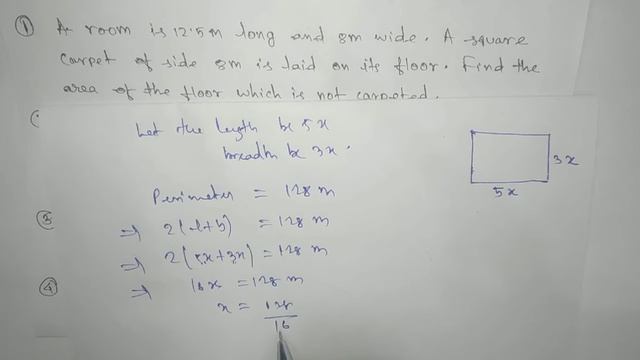 ① A room is 12.5m long and 8m wide. A square
carpet of side 8m is laid on its floor. Find the
area of the floor which is not carpeted.
Let the length be 5x
breadth be 3x.
3x
5x
Perimeter = 128 m
③
⇒ 2(l+b) = 128 m
⇒ 2(5x+3x) = 128 m
④
⇒ 16x = 128 m
x = 128/16